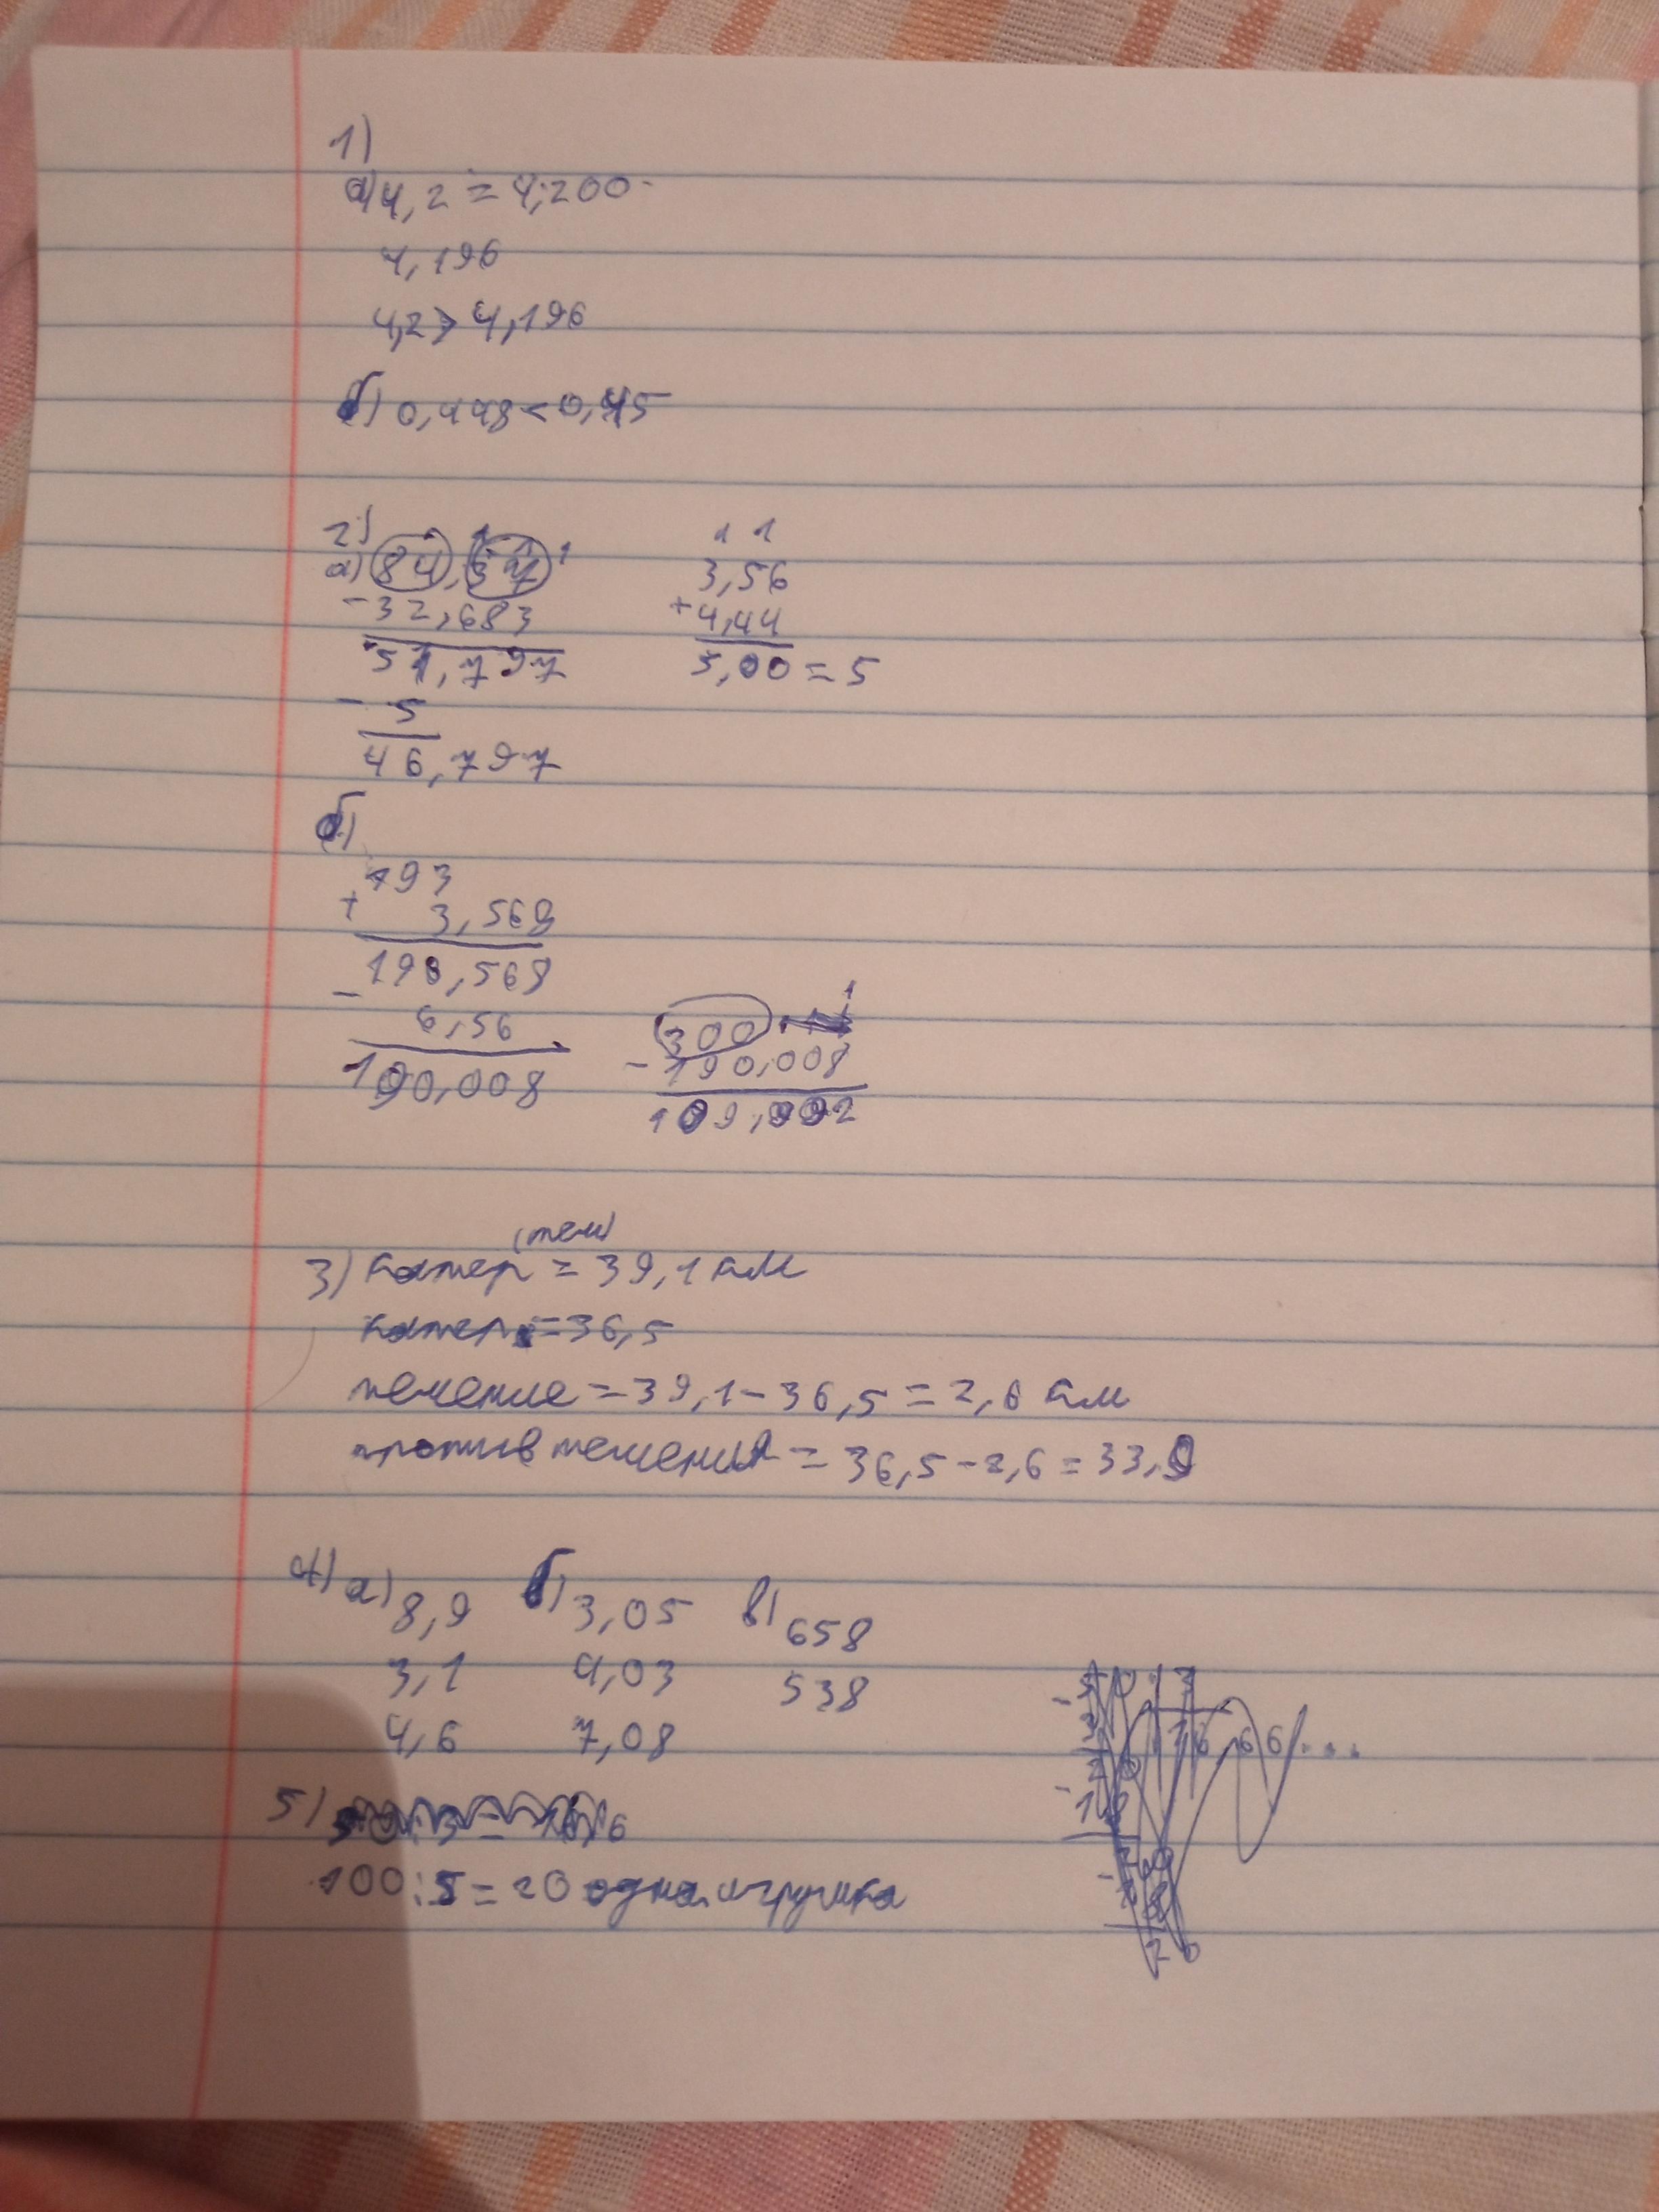 1)
а) 4,2 = 4,200
4,196
4,2 > 4,196
б) 0,448 < 0,45
2)
а) 84,37
- 32,683
51,797
- 5
46,797
1 1
3,56
+ 4,44
5,00 = 5
б)
193
+ 3,568
196,568
- 6,56
190,008
1
300
- 190,008
109,992
3) катер (теч) = 39,1 км
катер = 36,5
течение = 39,1 - 36,5 = 2,6 км
против течения = 36,5 - 2,6 = 33,9
4) а) 8,9
3,1
4,6
б) 3,05
4,03
7,08
в) 658
538
5)
100 : 5 = 20 одна игрушка